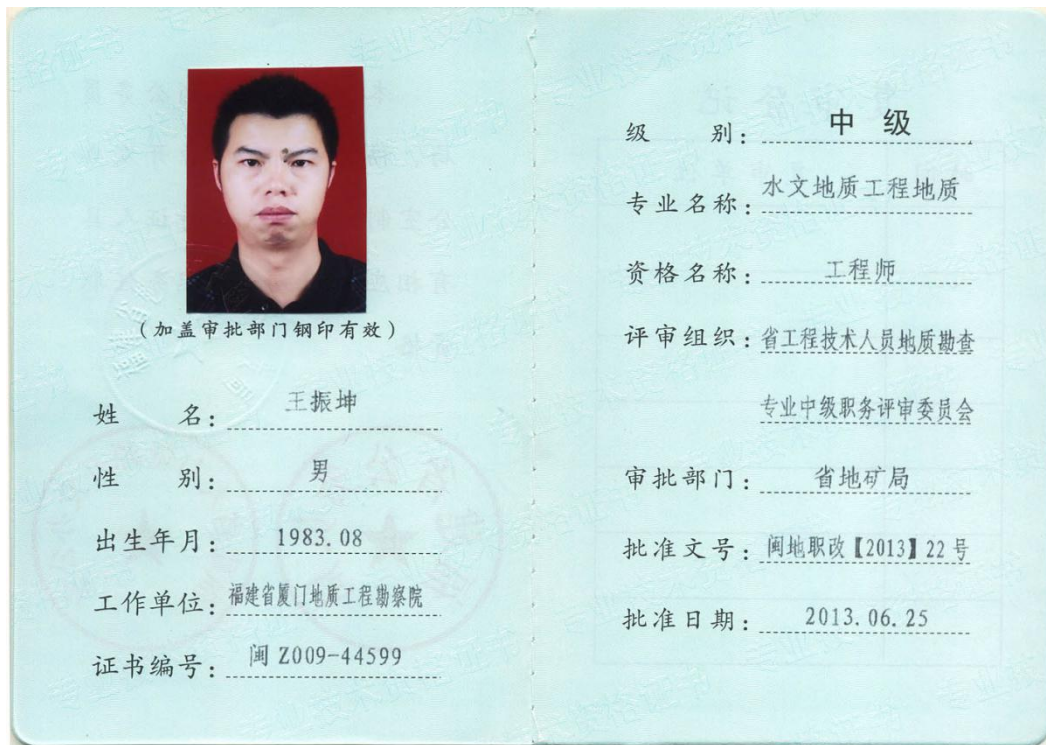 (加盖审批部门钢印有效)
姓 名: 王振坤
性 别: 男
出生年月: 1983.08
工作单位: 福建省厦门地质工程勘察院
证书编号: 闽 Z009-44599
级 别: 中 级
专业名称: 水文地质工程地质
资格名称: 工程师
评审组织: 省工程技术人员地质勘查
专业中级职务评审委员会
审批部门: 省地矿局
批准文号: 闽地职改【2013】22号
批准日期: 2013.06.25